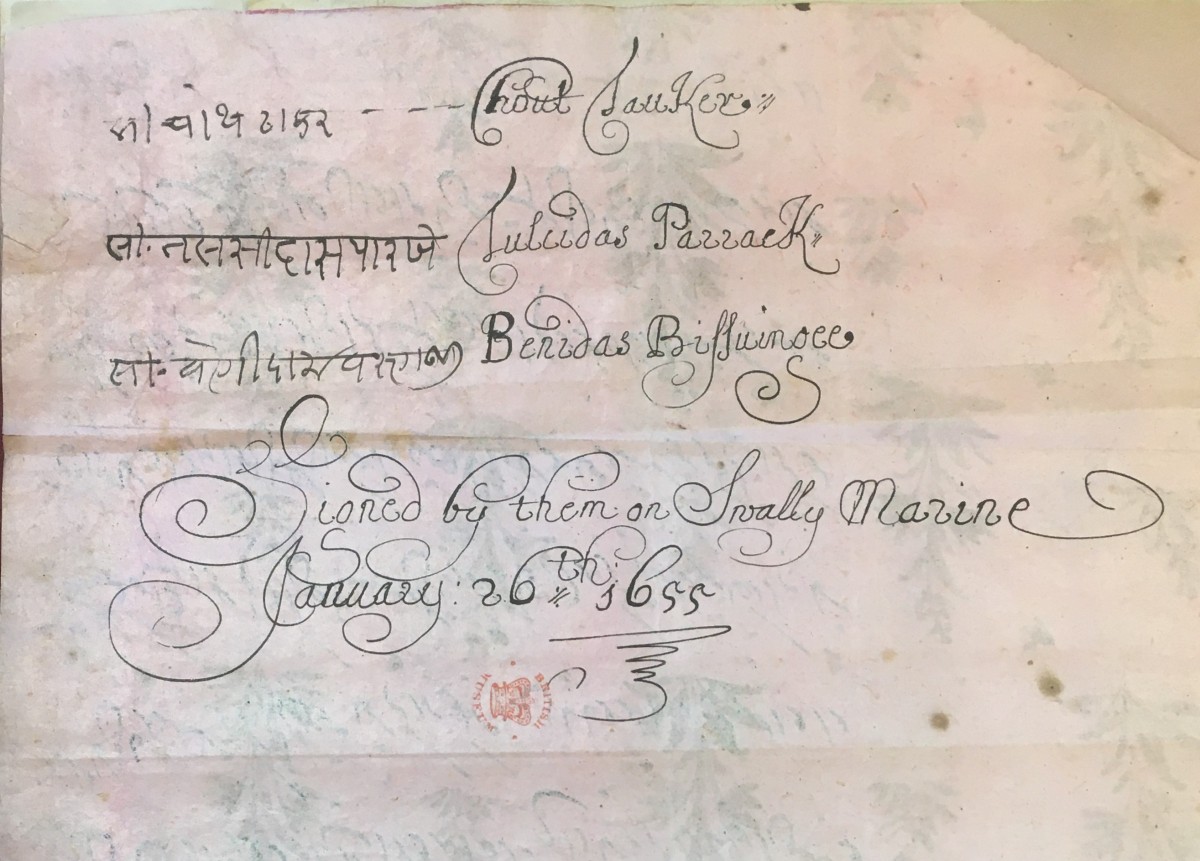 चोथ ठाकर - - - Chout Tauker
लो. तलसीदास पारजे Tulcidas Parrack
Benidas Bissuinoee
Signed by them on Swally Marine
January: 26th: 1655
BRITISH MUSEUM